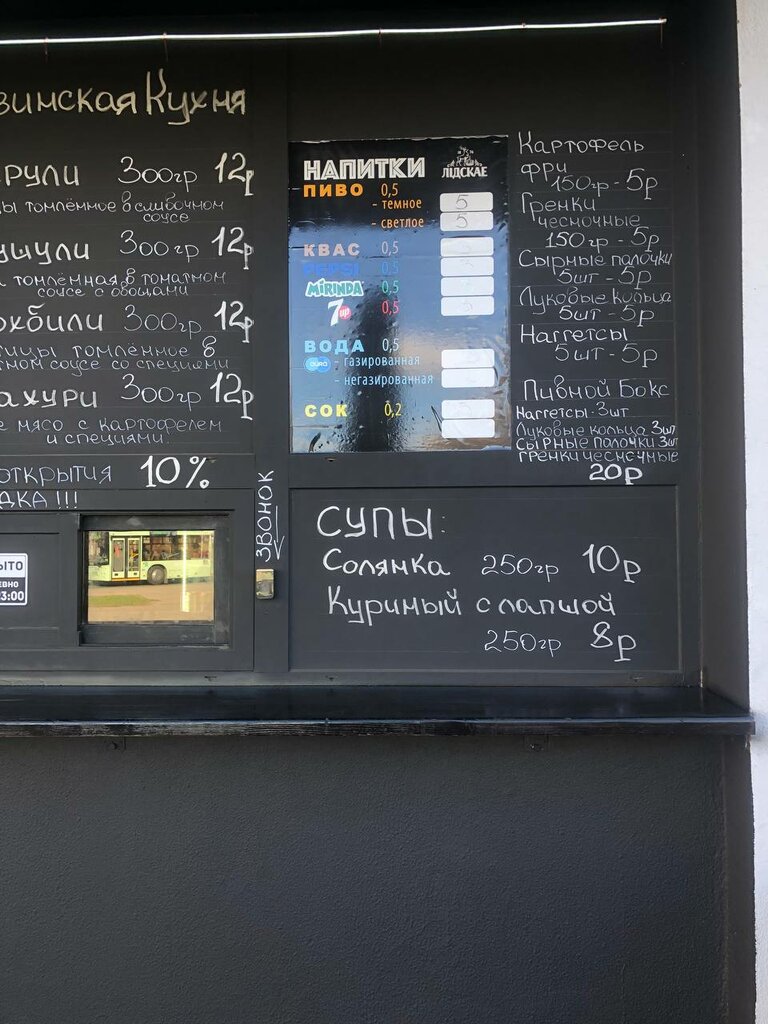 Кухня
300гр 12р
томлённое в сливочном
соусе
300гр 12р
томлённая в томатном
соусе с овощами
300гр 12р
томлённое в
соусе со специями
300гр 12р
мясо с картофелем
и специями.
открытия 10%
!!!
23:00
ЗВОНОК
НАПИТКИ
ЛІДСКАЕ
ПИВО 0,5
- темное 5
- светлое 5
КВАС 0,5
PEPSI 0,5
MIRINDA 0,5
7up 0,5
ВОДА 0,5
aura - газированная
- негазированная
СОК 0,2
Картофель
фри
150гр - 5р
Гренки
чесночные
150гр - 5р
Сырные палочки
5шт - 5р
Луковые кольца
5шт - 5р
Наггетсы
5шт - 5р
Пивной Бокс
Наггетсы - 3шт
Луковые кольца 3шт
сырные палочки 3шт
гренки чесночные
20р
СУПЫ:
Солянка 250гр 10р
Куриный с лапшой
250гр 8р